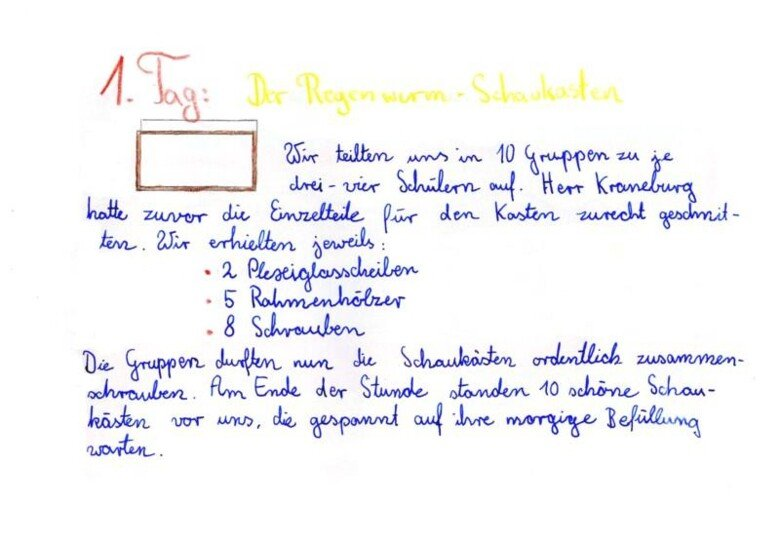 1. Tag: Der Regenwurm-Schaukasten
Wir teilten uns in 10 Gruppen zu je
drei-vier Schülern auf. Herr Kraneburg
hatte zuvor die Einzelteile für den Kasten zurecht geschnit-
ten. Wir erhielten jeweils:
• 2 Plexiglasscheiben
• 5 Rahmenhölzer
• 8 Schrauben
Die Gruppen durften nun die Schaukästen ordentlich zusammen-
schrauben. Am Ende der Stunde standen 10 schöne Schau-
kästen vor uns, die gespannt auf ihre morgige Befüllung
warten.